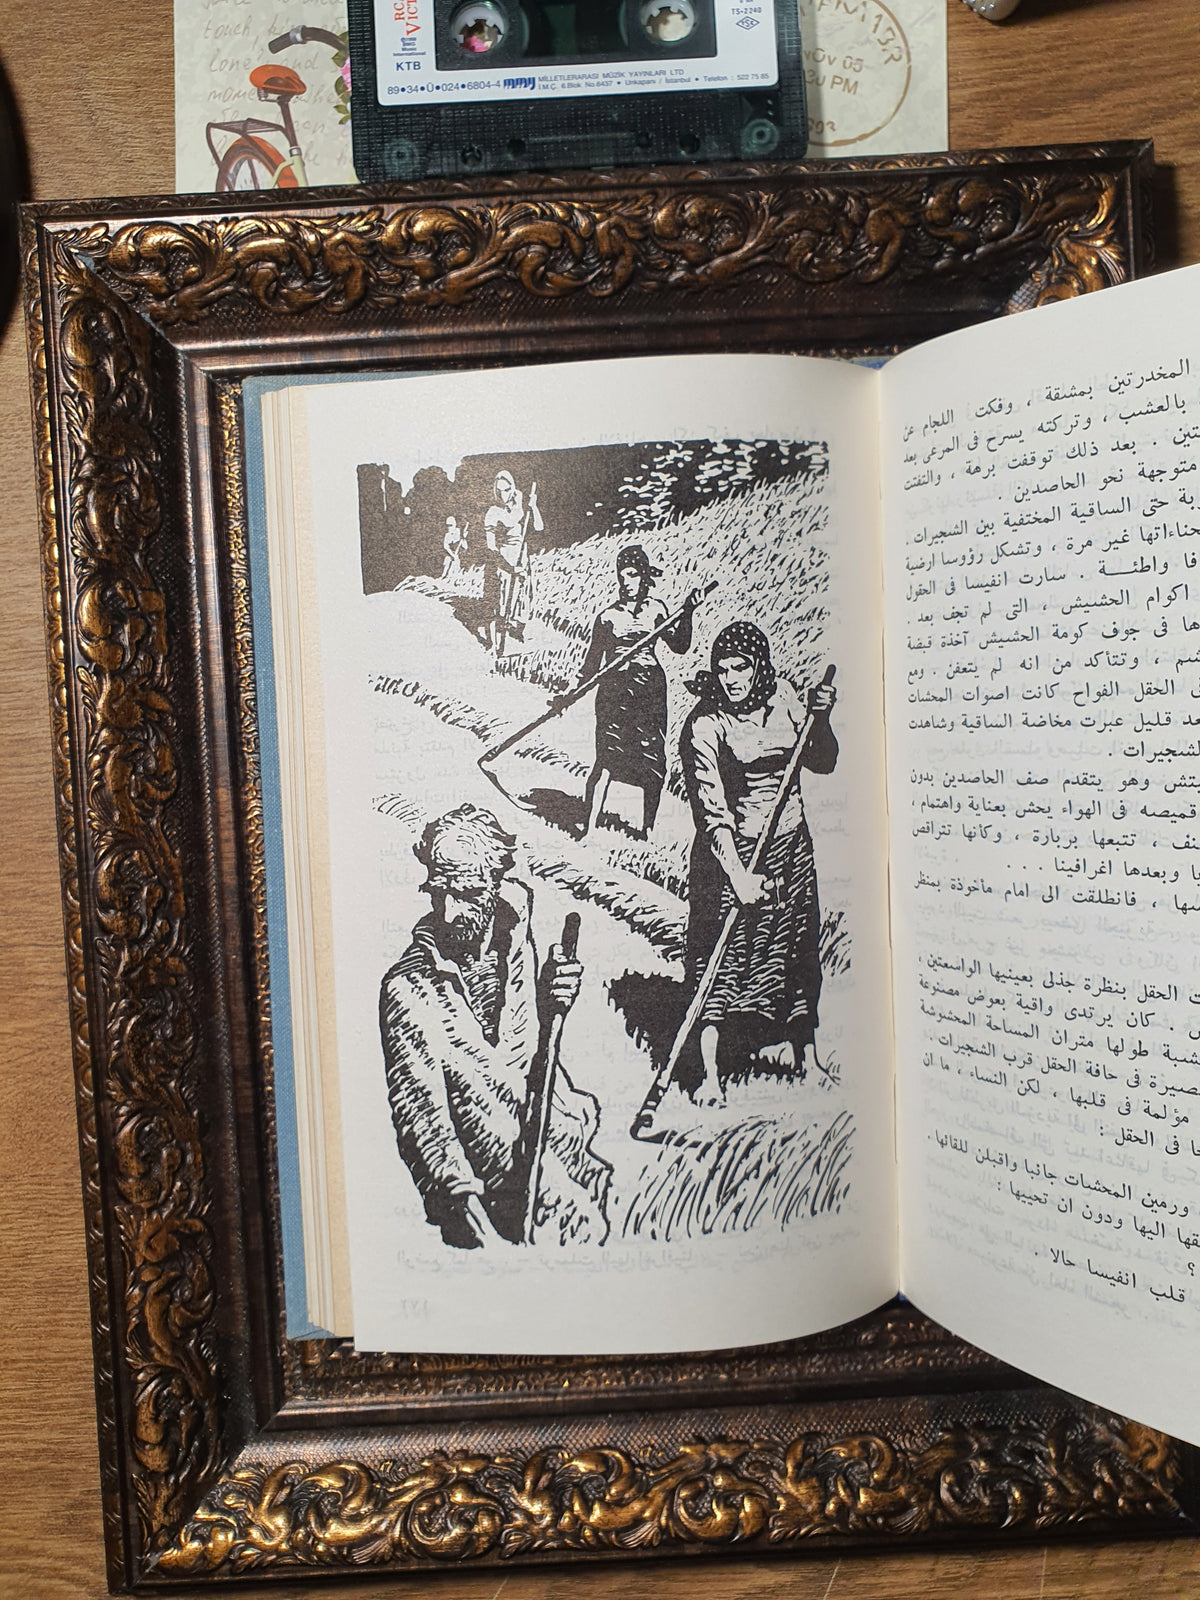 RCA
VICT
KTB
TS-2240
89•34•Ü•024•6804-4 MMY MİLLETLERARASI MÜZİK YAYINLARI LTD
İ.M.Ç. 6.Blok No.6437 • Unkapanı / İstanbul • Telefon : 522 75 85
NOV 05
PM
المخدرتين بمشقة ، وفكت اللجام عن
بالعشب ، وتركته يسرح فى المرعى بعد
تين . بعد ذلك توقفت برهة ، والتفتت
متوجهة نحو الحاصدين .
ة حتى الساقية المختفية بين الشجيرات .
حناءاتها غير مرة ، وتشكل رؤوسا ارضية
فا واطئـــة . سارت انفيسا فى الحقول
اكوام الحشيش ، التى لم تجف بعد .
ها فى جوف كومة الحشيش آخذة قبضة
شم ، وتتأكد من انه لم يتعفن . ومع
الحقل الفواح كانت اصوات المحشات
عد قليل عبرت مخاضة الساقية وشاهدت
لشجيرات
تش وهو يتقدم صف الحاصدين بدون
قميصه فى الهواء يحش بعناية واهتمام ،
نف ، تتبعها بربارة ، وكأنها تتراقص
ا وبعدها اغرافينا . . .
سها ، فانطلقت الى امام مأخوذة بمنظر
ت الحقل بنظرة جذلى بعينيها الواسعتين ،
. كان يرتدى واقية بعوض مصنوعة
شبة طولها متران المساحة المحشوشة
صيرة فى حافة الحقل قرب الشجيرات .
مؤلمة فى قلبها ، لكن النساء ، ما ان
ا فى الحقل :
ورمين المحشات جانبا واقبلن للقائها .
قها اليها ودون ان تحييها :
؟
قلب انفيسا حالا .